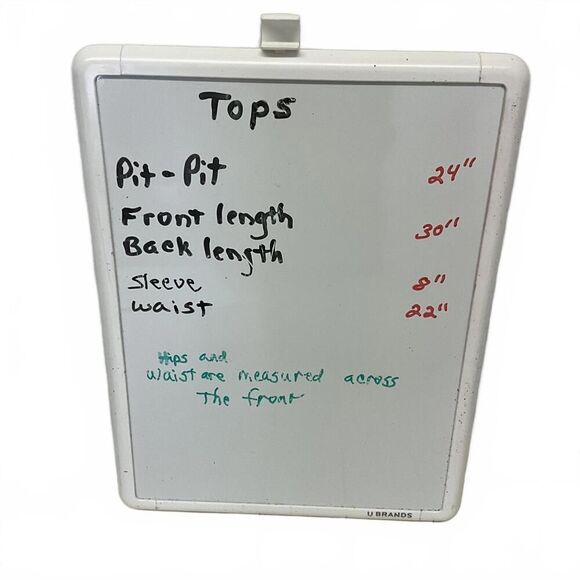 Tops
Pit-Pit 24"
Front length 30"
Back length
Sleeve 8"
waist 22"
Hips and
Waist are measured across
The front
U BRANDS